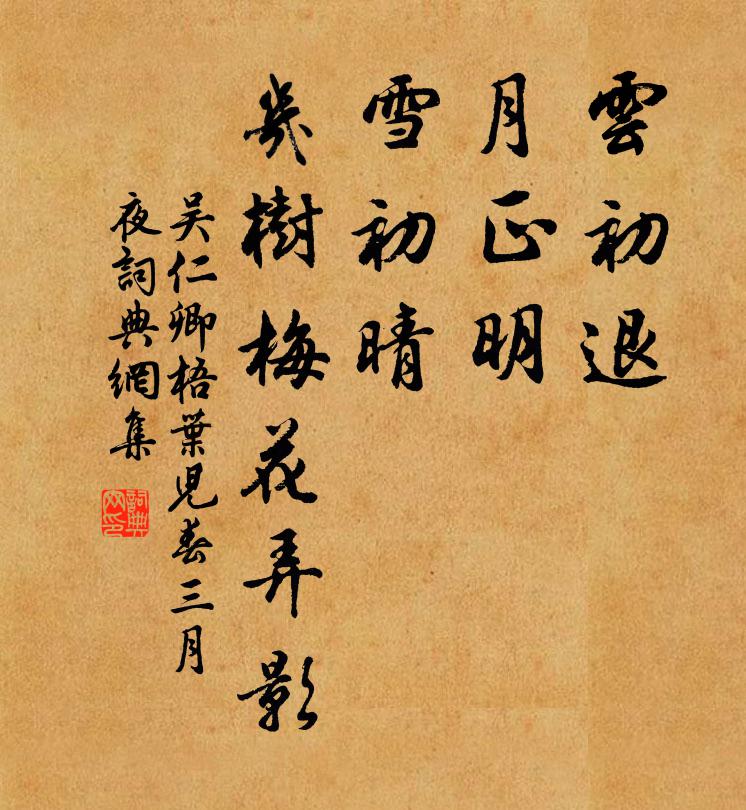 雲初退
月正明
雪初晴
幾樹梅花弄影
吴仁卿梧葉兒春三月
夜詞典網集
詞典网印